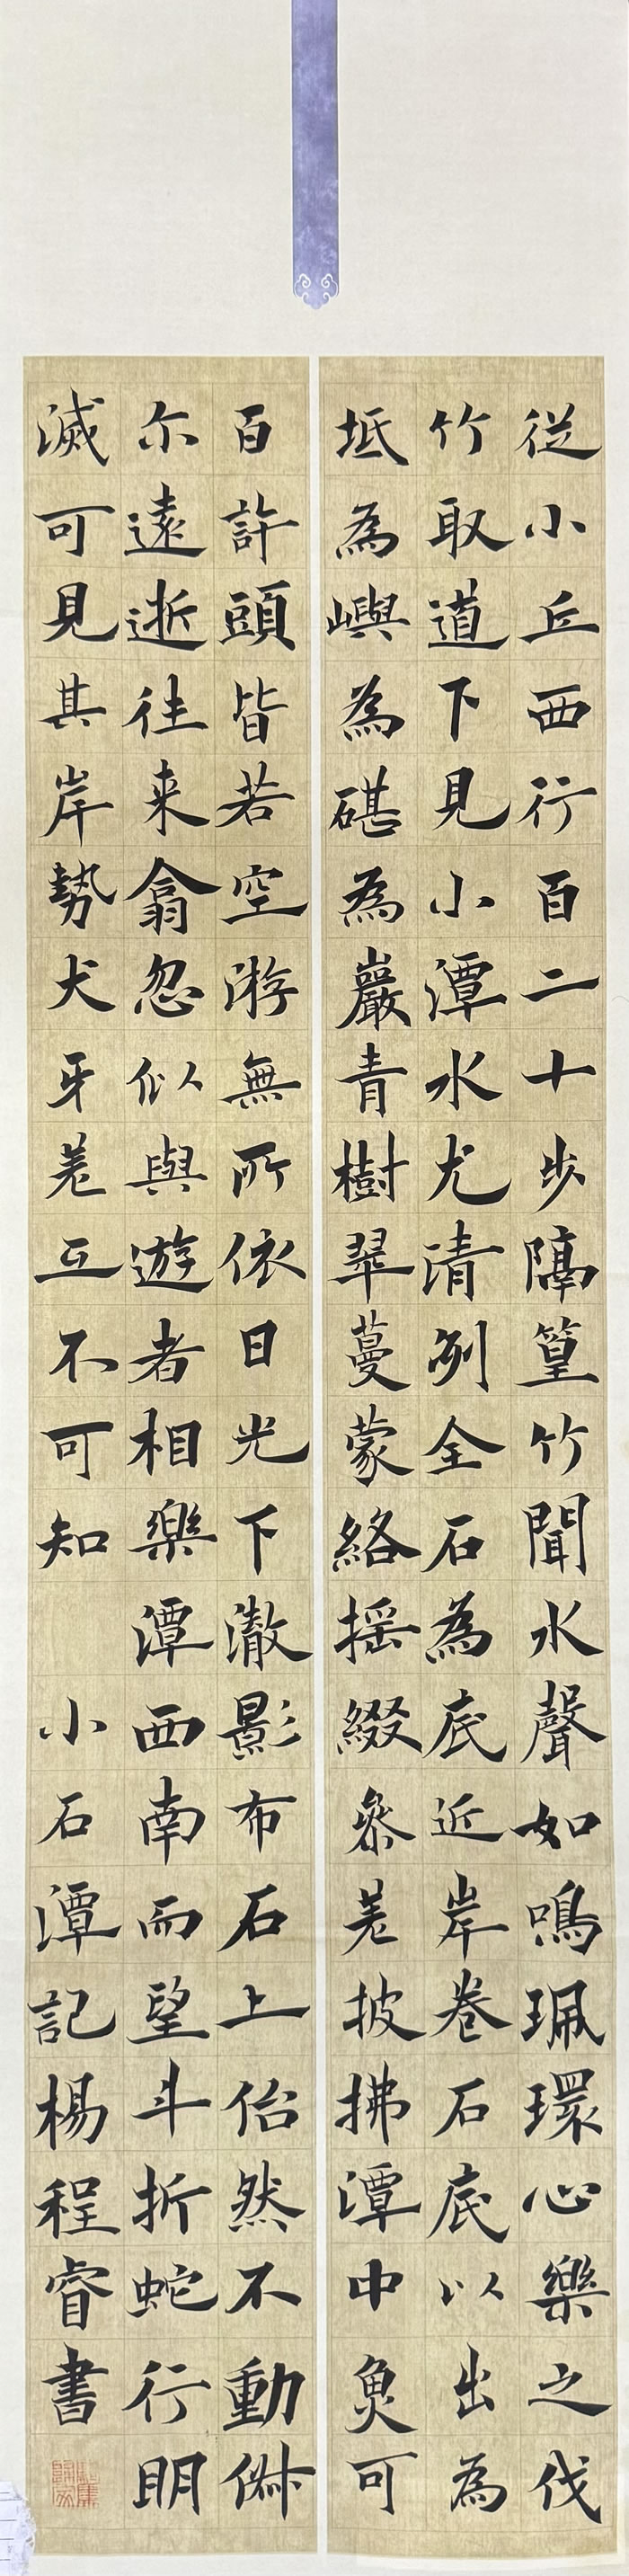 從小丘西行百二十步隔篁竹聞水聲如鳴珮環心樂之伐
竹取道下見小潭水尤清冽全石為底近岸卷石底以出為
坻為嶼為碪為巖青樹翠蔓蒙絡搖綴參差披拂潭中魚可
百許頭皆若空游無所依日光下澈影布石上佁然不動俶
尔遠逝往来翕忽似與遊者相樂潭西南而望斗折蛇行明
滅可見其岸勢犬牙差互不可知 小石潭記楊程睿書